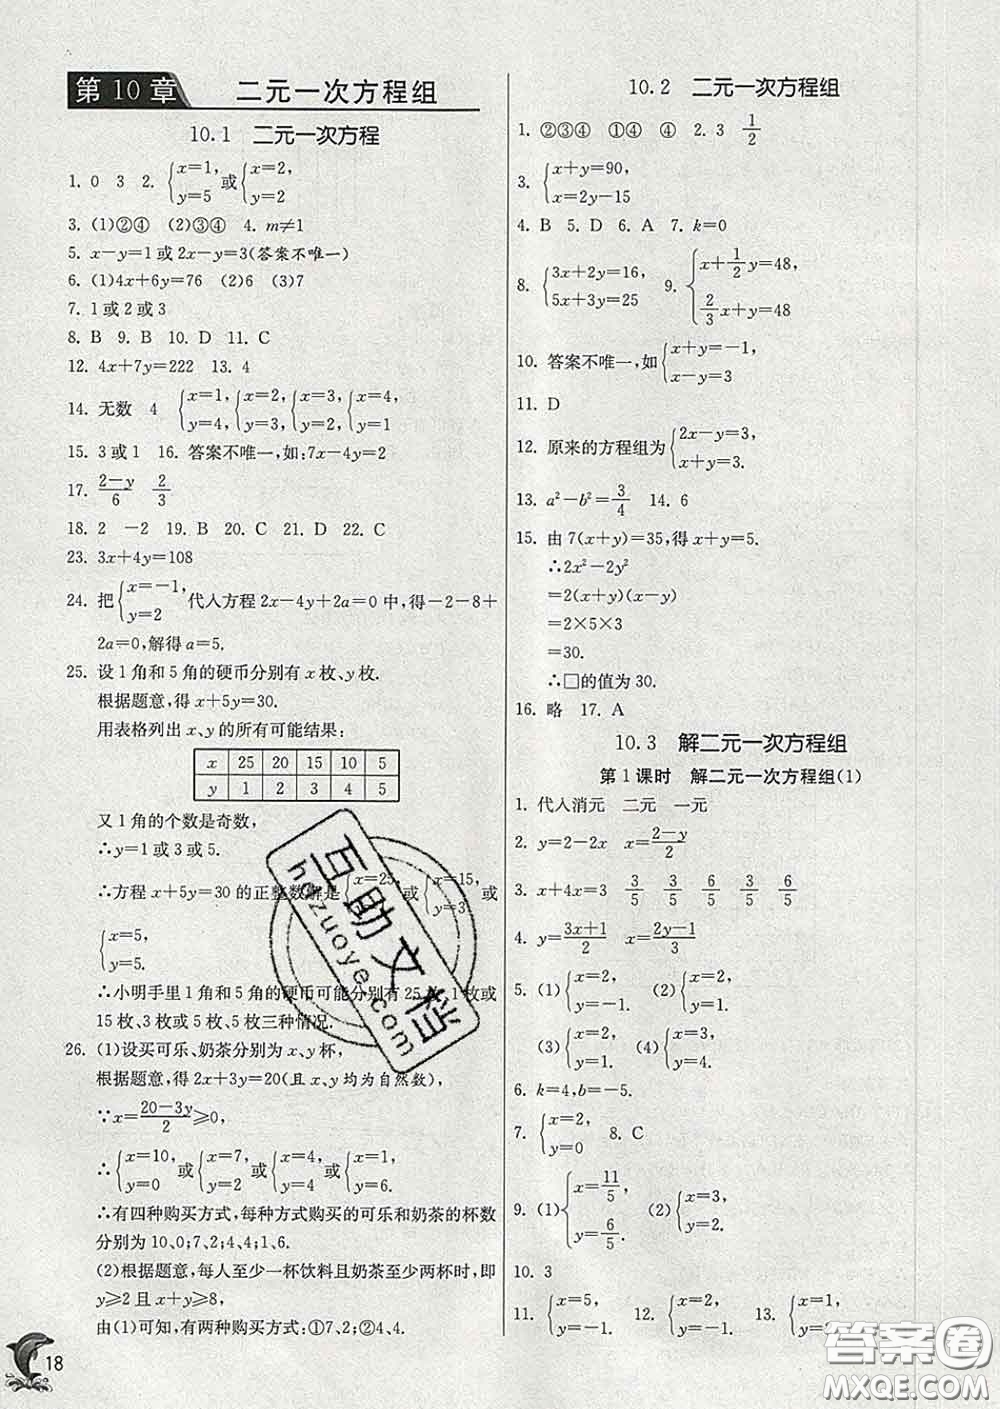 第 10 章 二元一次方程组
10.1 二元一次方程
1. 0 3 2. {x=1, y=5 或 {x=2, y=2
3. (1)②④ (2)②③④ 4. m≠1
5. x-y=1或2x-y=3(答案不唯一)
6. (1)4x+6y=76 (2)6 (3)7
7. 1或2或3
8. B 9. B 10. D 11. C
12. 4x+7y=222 13. 4
14. 无数 4 {x=1, y=4, {x=2, y=3, {x=3, y=2, {x=4, y=1
15. 3或1 16. 答案不唯一,如:7x-4y=2
17. (2-y)/6 2/3
18. 2 -2 19. B 20. C 21. D 22. C
23. 3x+4y=108
24. 把{x=-1, y=2 代入方程2x-4y+2a=0中,得-2-8+
2a=0,解得a=5.
25. 设1角和5角的硬币分别有x枚、y枚.
根据题意,得x+5y=30.
用表格列出x、y的所有可能结果:
x 25 20 15 10 5
y 1 2 3 4 5
又1角的个数是奇数,
∴y=1或3或5.
∴方程x+5y=30的正整数解是{x=25, y=1 或{x=15, y=3 或
{x=5, y=5.
∴小明手里1角和5角的硬币可能分别有25枚、1枚或
15枚、3枚或5枚、5枚三种情况.
26. (1)设买可乐、奶茶分别为x、y杯,
根据题意,得2x+3y=20(且x、y均为自然数),
∵x=(20-3y)/2≥0,
∴{x=10, y=0 或{x=7, y=2 或{x=4, y=4 或{x=1, y=6.
∴有四种购买方式,每种方式购买的可乐和奶茶的杯数
分别为10、0;7、2;4、4;1、6.
(2)根据题意,每人至少一杯饮料且奶茶至少两杯时,即
y≥2且x+y≥8,
由(1)可知,有两种购买方式:①7、2;②4、4.
18
10.2 二元一次方程组
1. ②③④ ①④ ④ 2. 3 1/2
3. {x+y=90, x=2y-15
4. B 5. D 6. A 7. k=0
8. {3x+2y=16, 5x+3y=25 9. {x+1/2y=48, 2/3x+y=48
10. 答案不唯一,如{x+y=-1, x-y=3
11. D
12. 原来的方程组为{2x-y=3, x+y=3.
13. a²-b²=3/4 14. 6
15. 由7(x+y)=35,得x+y=5.
∴2x²-2y²
=2(x+y)(x-y)
=2×5×3
=30.
∴□的值为30.
16. 略 17. A
10.3 解二元一次方程组
第1课时 解二元一次方程组(1)
1. 代入消元 二元 一元
2. y=2-2x x=(2-y)/2
3. x+4x=3 3/5 3/5 6/5 3/5 6/5
4. y=(3x+1)/2 x=(2y-1)/3
5. (1){x=2, y=-1. (2){x=2, y=-1.
(3){x=1, y=1. (4){x=3, y=4.
6. k=4,b=-5.
7. {x=2, y=0 8. C
9. (1){x=11/5, y=6/5. (2){x=3, y=2.
10. 3
11. {x=5, y=-1. 12. {x=2, y=-1. 13. {x=1, y=-1.
互助文档
hezuoye.com
答案圈
MXQE.COM